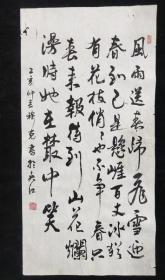 風雨送春归飛雪迎
春到已是懸崖百丈冰猶
有花枝俏俏也不争春只
把春来報待到山花爛
漫時她在叢中笑
仲春
書於
江